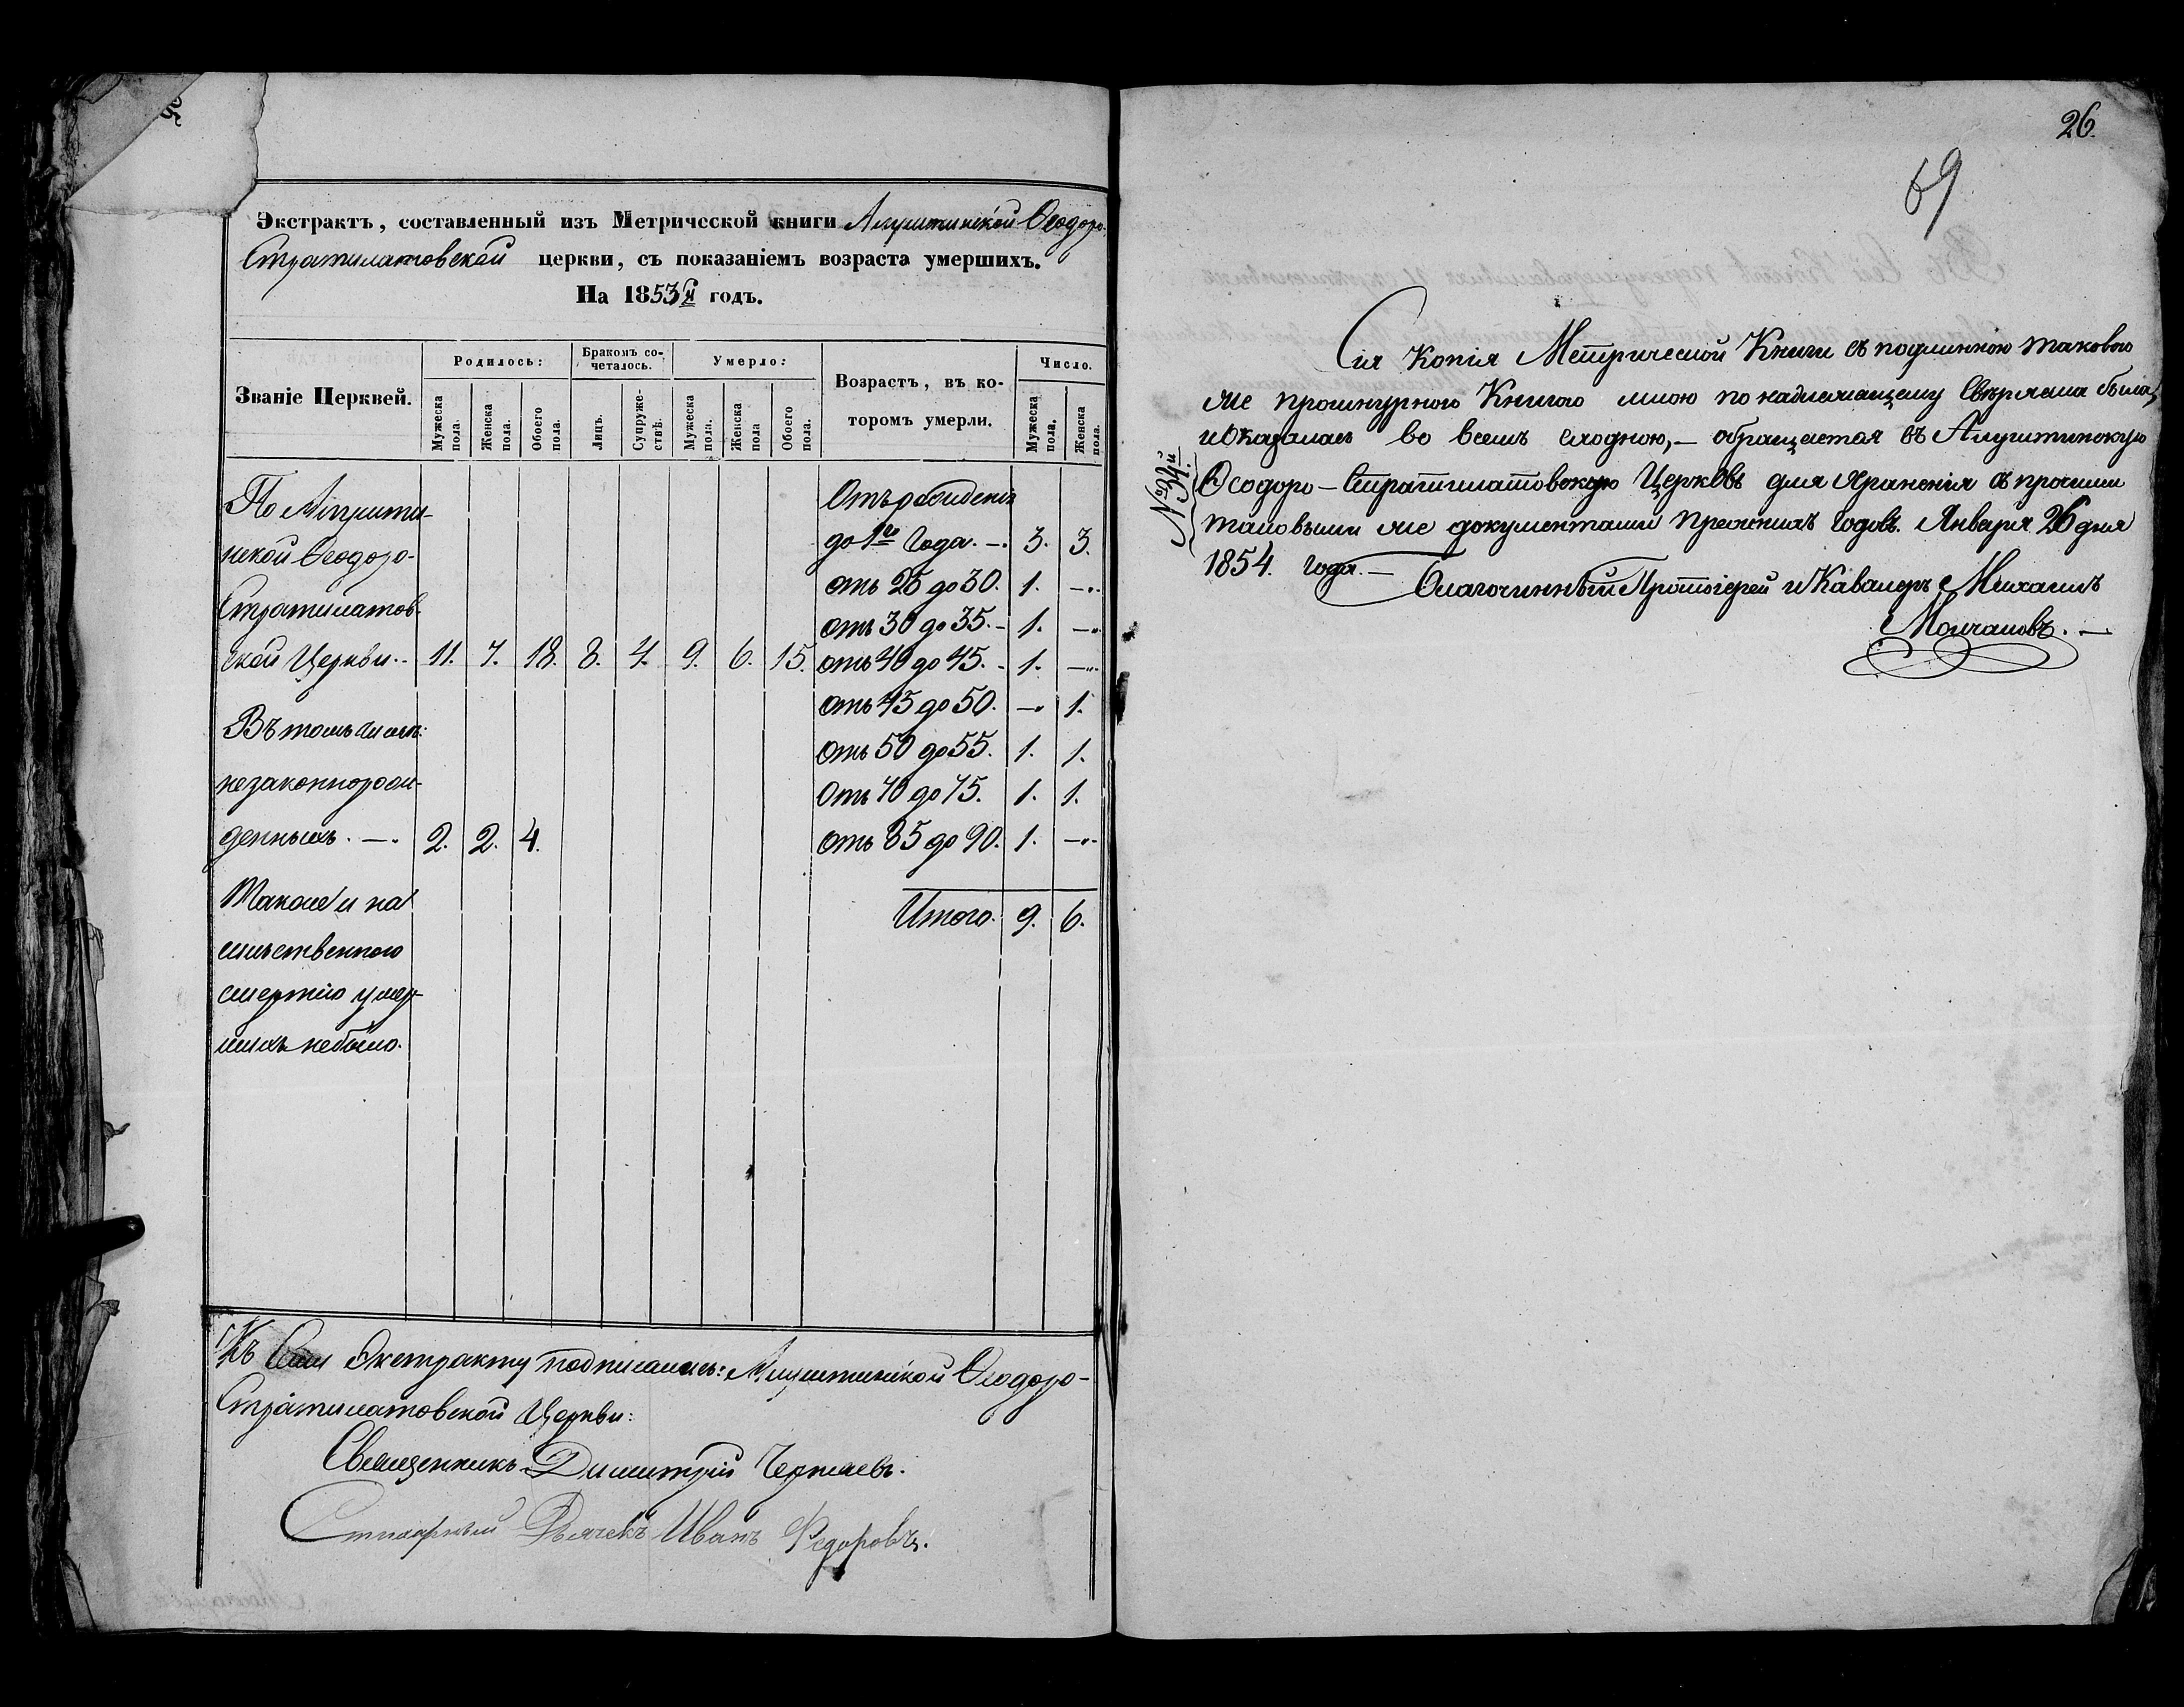 Экстрактъ, составленный изъ Метрической книги Алуштинской Ѳеодоро-
Стратилатовской церкви, съ показаніемъ возраста умершихъ.
На 1853й годъ.
Званіе Церквей.
Родилось:
Мужеска пола.
Женска пола.
Обоего пола.
Бракомъ сочеталось.
Лицъ.
Супружествъ.
Умерло:
Мужеска пола.
Женска пола
Обоего пола.
Возрастъ, въ ко-
торомъ умерли.
Число.
Мужеска пола.
Женска пола.
По Алушти-
нской Ѳеодоро-
Стратилатов-
ской Церкви.. 11. 7. 18. 8. 4. 9. 6. 15.
Въ томъ числѣ:
незаконнорож-
денныхъ. —. 2. 2. 4.
Также и на
сильственною
смертію умер-
шихъ небыло.
Отъ рожденія
до 1го Года. —. 3. 3.
отъ 25 до 30. 1. —..
отъ 30 до 35. - 1. —..
отъ 40 до 45. - 1. —..
отъ 45 до 50. —. 1.
отъ 50 до 55. 1. 1.
Отъ 70 до 75. 1. 1.
отъ 85 до 90. 1. —..
Итого. 9. 6.
Къ Сему Экстракту подписались: Алуштинской Ѳеодоро-
Стратилатовской Церкви:
Священникъ Димитрій Чернаевъ.
Стихарный Дьячекъ Иванъ Федоровъ.
26.
69
№34й
Сія Копія Метрической Книги съ подлинною таковою
же прошнурною Книгою мною по надлежащему Свѣряема была,
и оказалась во всемъ сходною,— обращается въ Алуштинскую
Ѳеодоро-Стратилатовскую Церковь для храненія съ прочими
таковыми же документами прежнихъ годовъ. Января 26 дня
1854. года.—
Благочинный Протоіерей и Кавалеръ Михаилъ
Молчановъ. —